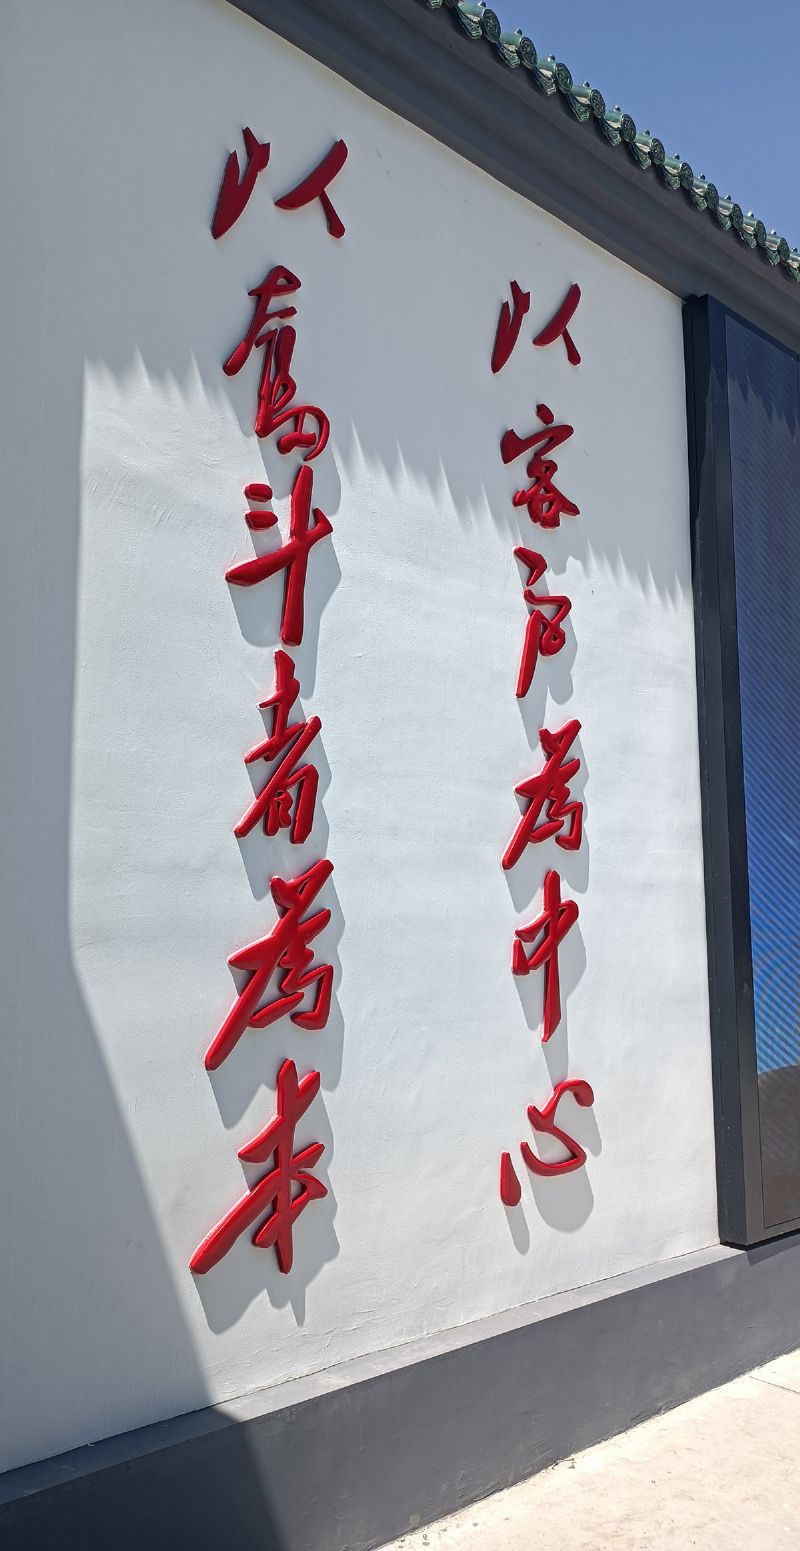 以客户为中心
以奋斗者为本